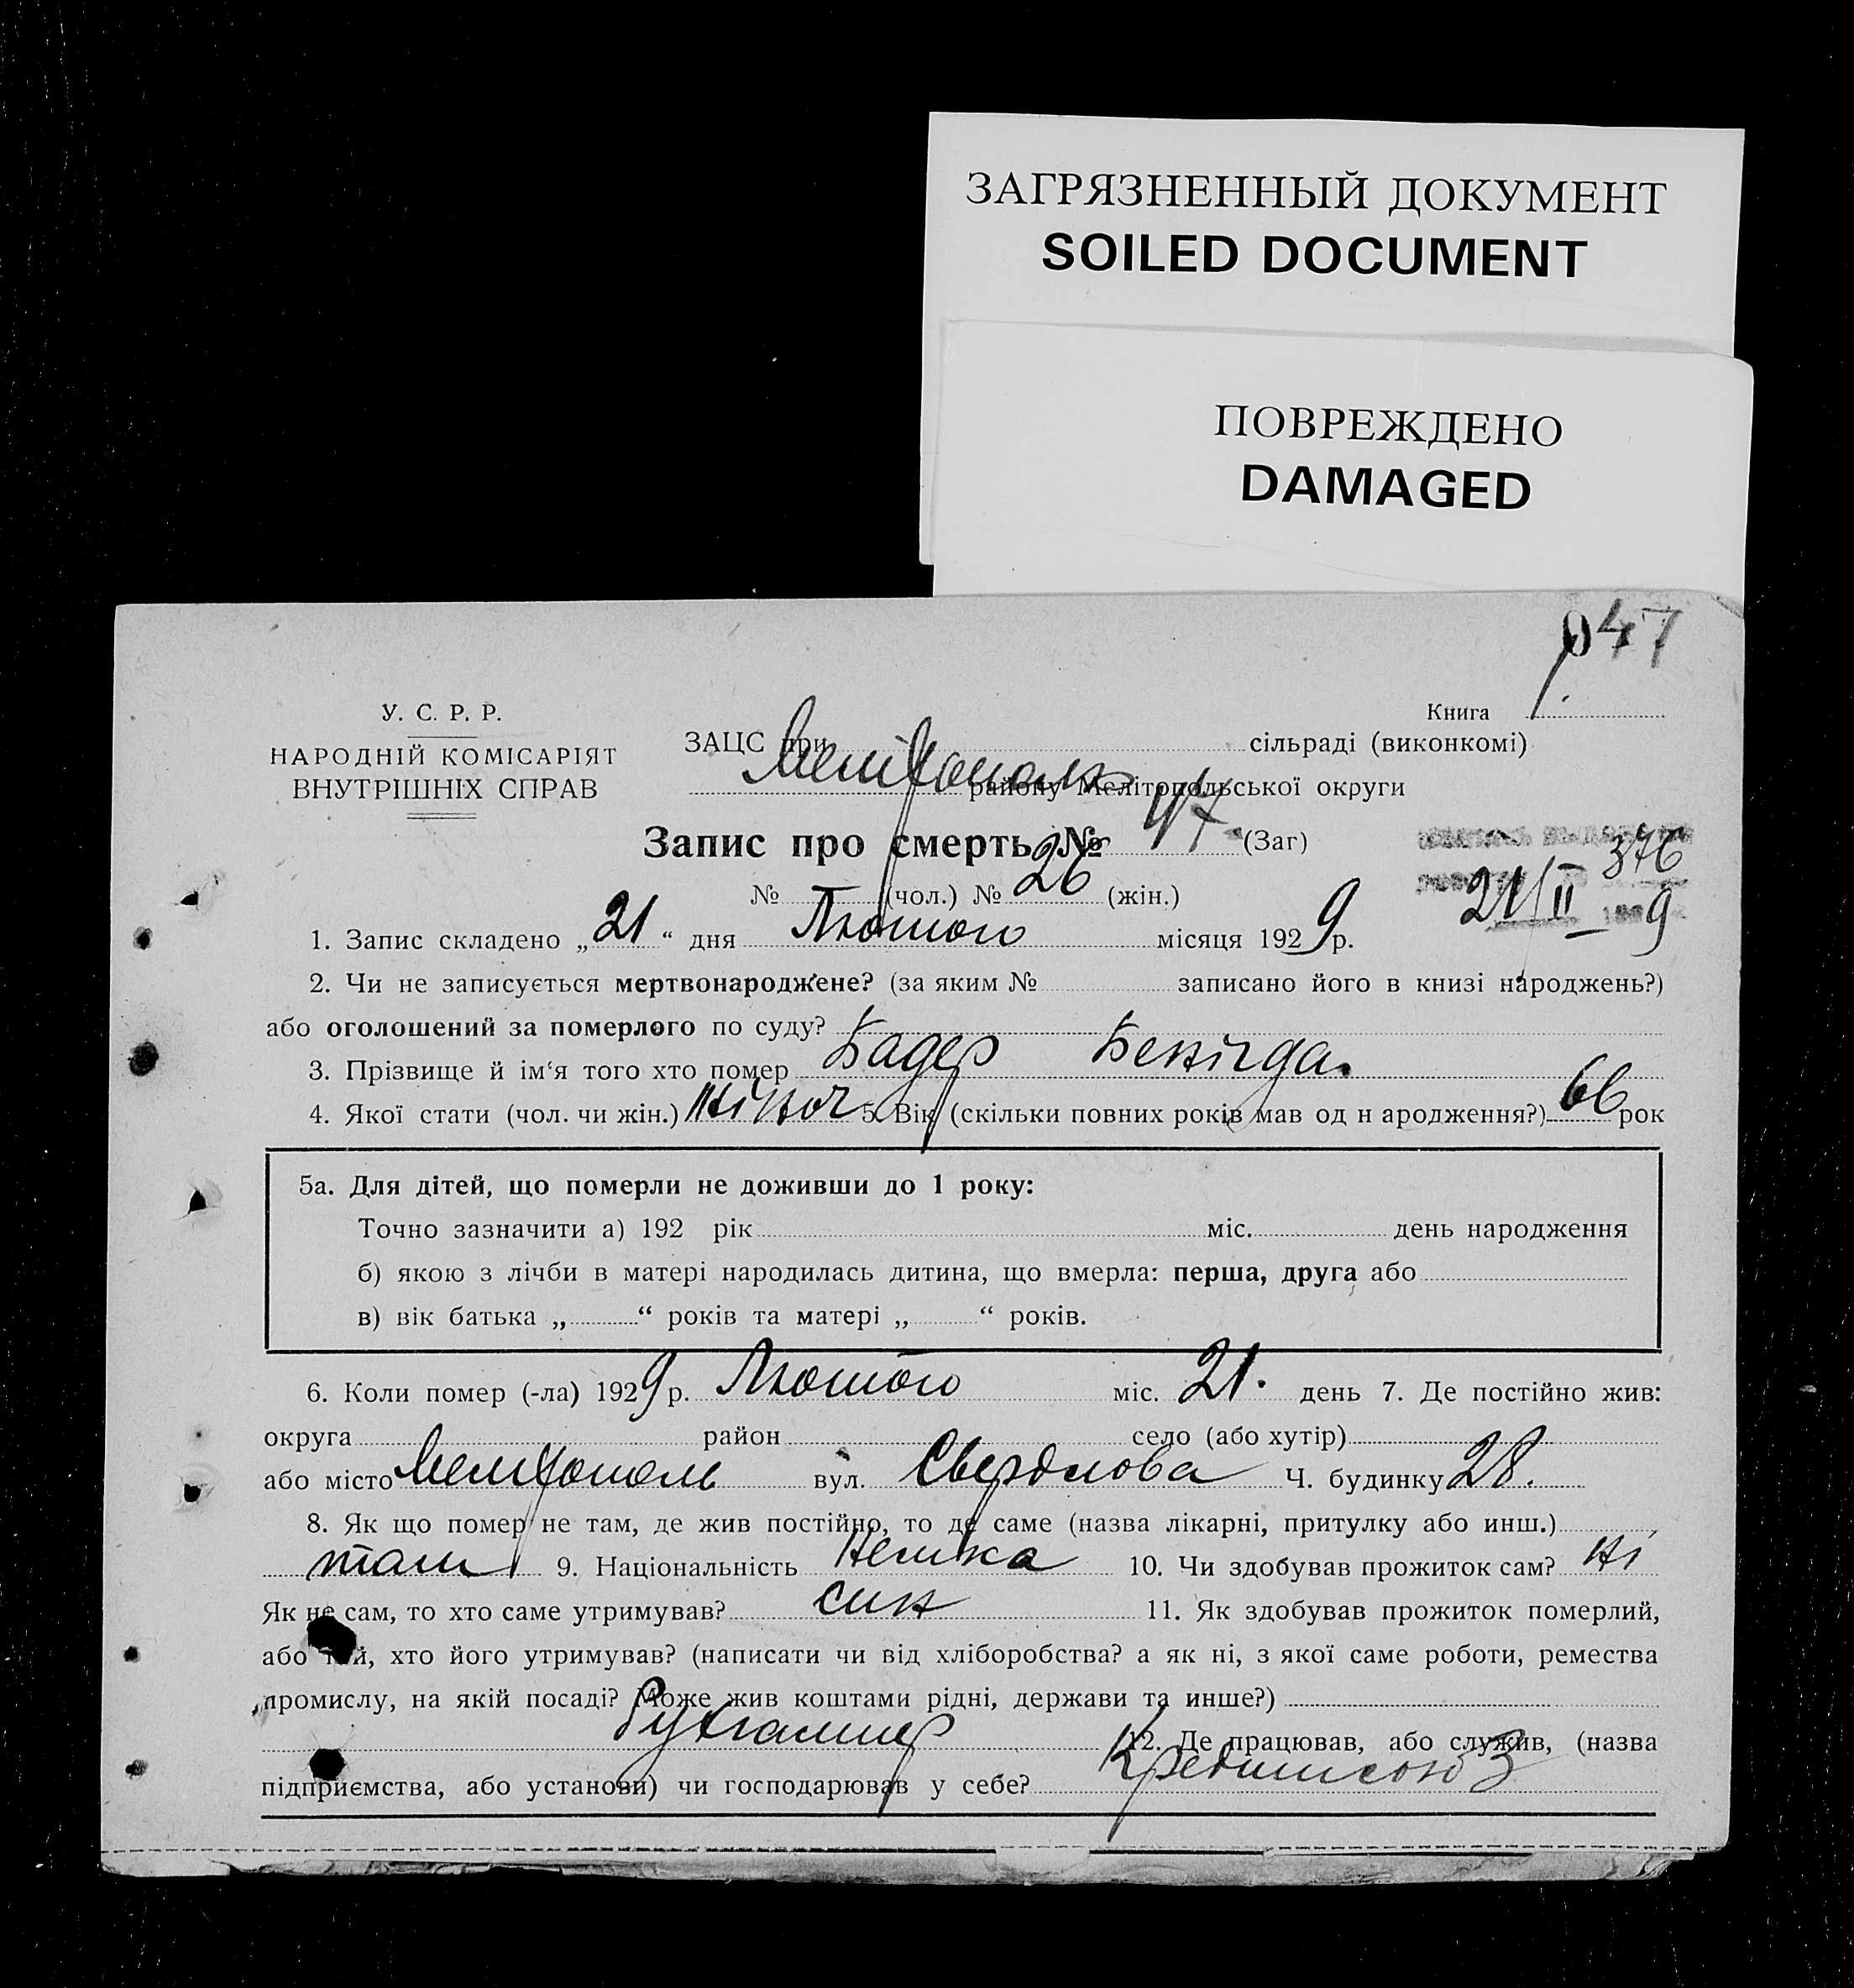 ЗАГРЯЗНЕННЫЙ ДОКУМЕНТ
SOILED DOCUMENT
ПОВРЕЖДЕНО
DAMAGED
047
Книга 1.
У. С. Р. Р.
НАРОДНІЙ КОМІСАРІЯТ
ВНУТРІШНІХ СПРАВ
ЗАЦС при сільраді (виконкомі)
Мелітополь району Мелітопольської округи
Запис про смерть № 47 (Заг)
376
№ (чол.) № 26 (жін.)
21/II 9
1. Запис складено „21“ дня Лютого місяця 1929 р.
2. Чи не записується мертвонароджене? (за яким № записано його в книзі народжень?)
або оголошений за померлого по суду?
3. Прізвище й ім'я того хто помер Бадер
4. Якої стати (чол. чи жін.) жіноч 5. Вік (скільки повних років мав од н ародження?) 66 рок
5а. Для дітей, що померли не доживши до 1 року:
Точно зазначити а) 192 рік міс. день народження
б) якою з лічби в матері народилась дитина, що вмерла: перша, друга або
в) вік батька „ “ років та матері „ “ років.
6. Коли помер (-ла) 1929 р. Лютого міс. 21. день 7. Де постійно жив:
округа район село (або хутір)
або місто Мелітополь вул. Свердлова Ч. будинку 28.
8. Як що помер не там, де жив постійно, то де саме (назва лікарні, притулку або инш.)
там 9. Національність Немка 10. Чи здобував прожиток сам? ні
Як не сам, то хто саме утримував? син 11. Як здобував прожиток померлий,
або той, хто його утримував? (написати чи від хліборобства? а як ні, з якої саме роботи, ремества
промислу, на якій посаді? Може жив коштами рідні, держави та инше?)
Бухгалтер 12. Де працював, або служив, (назва
підприємства, або установи) чи господарював у себе? Кредитсоюз